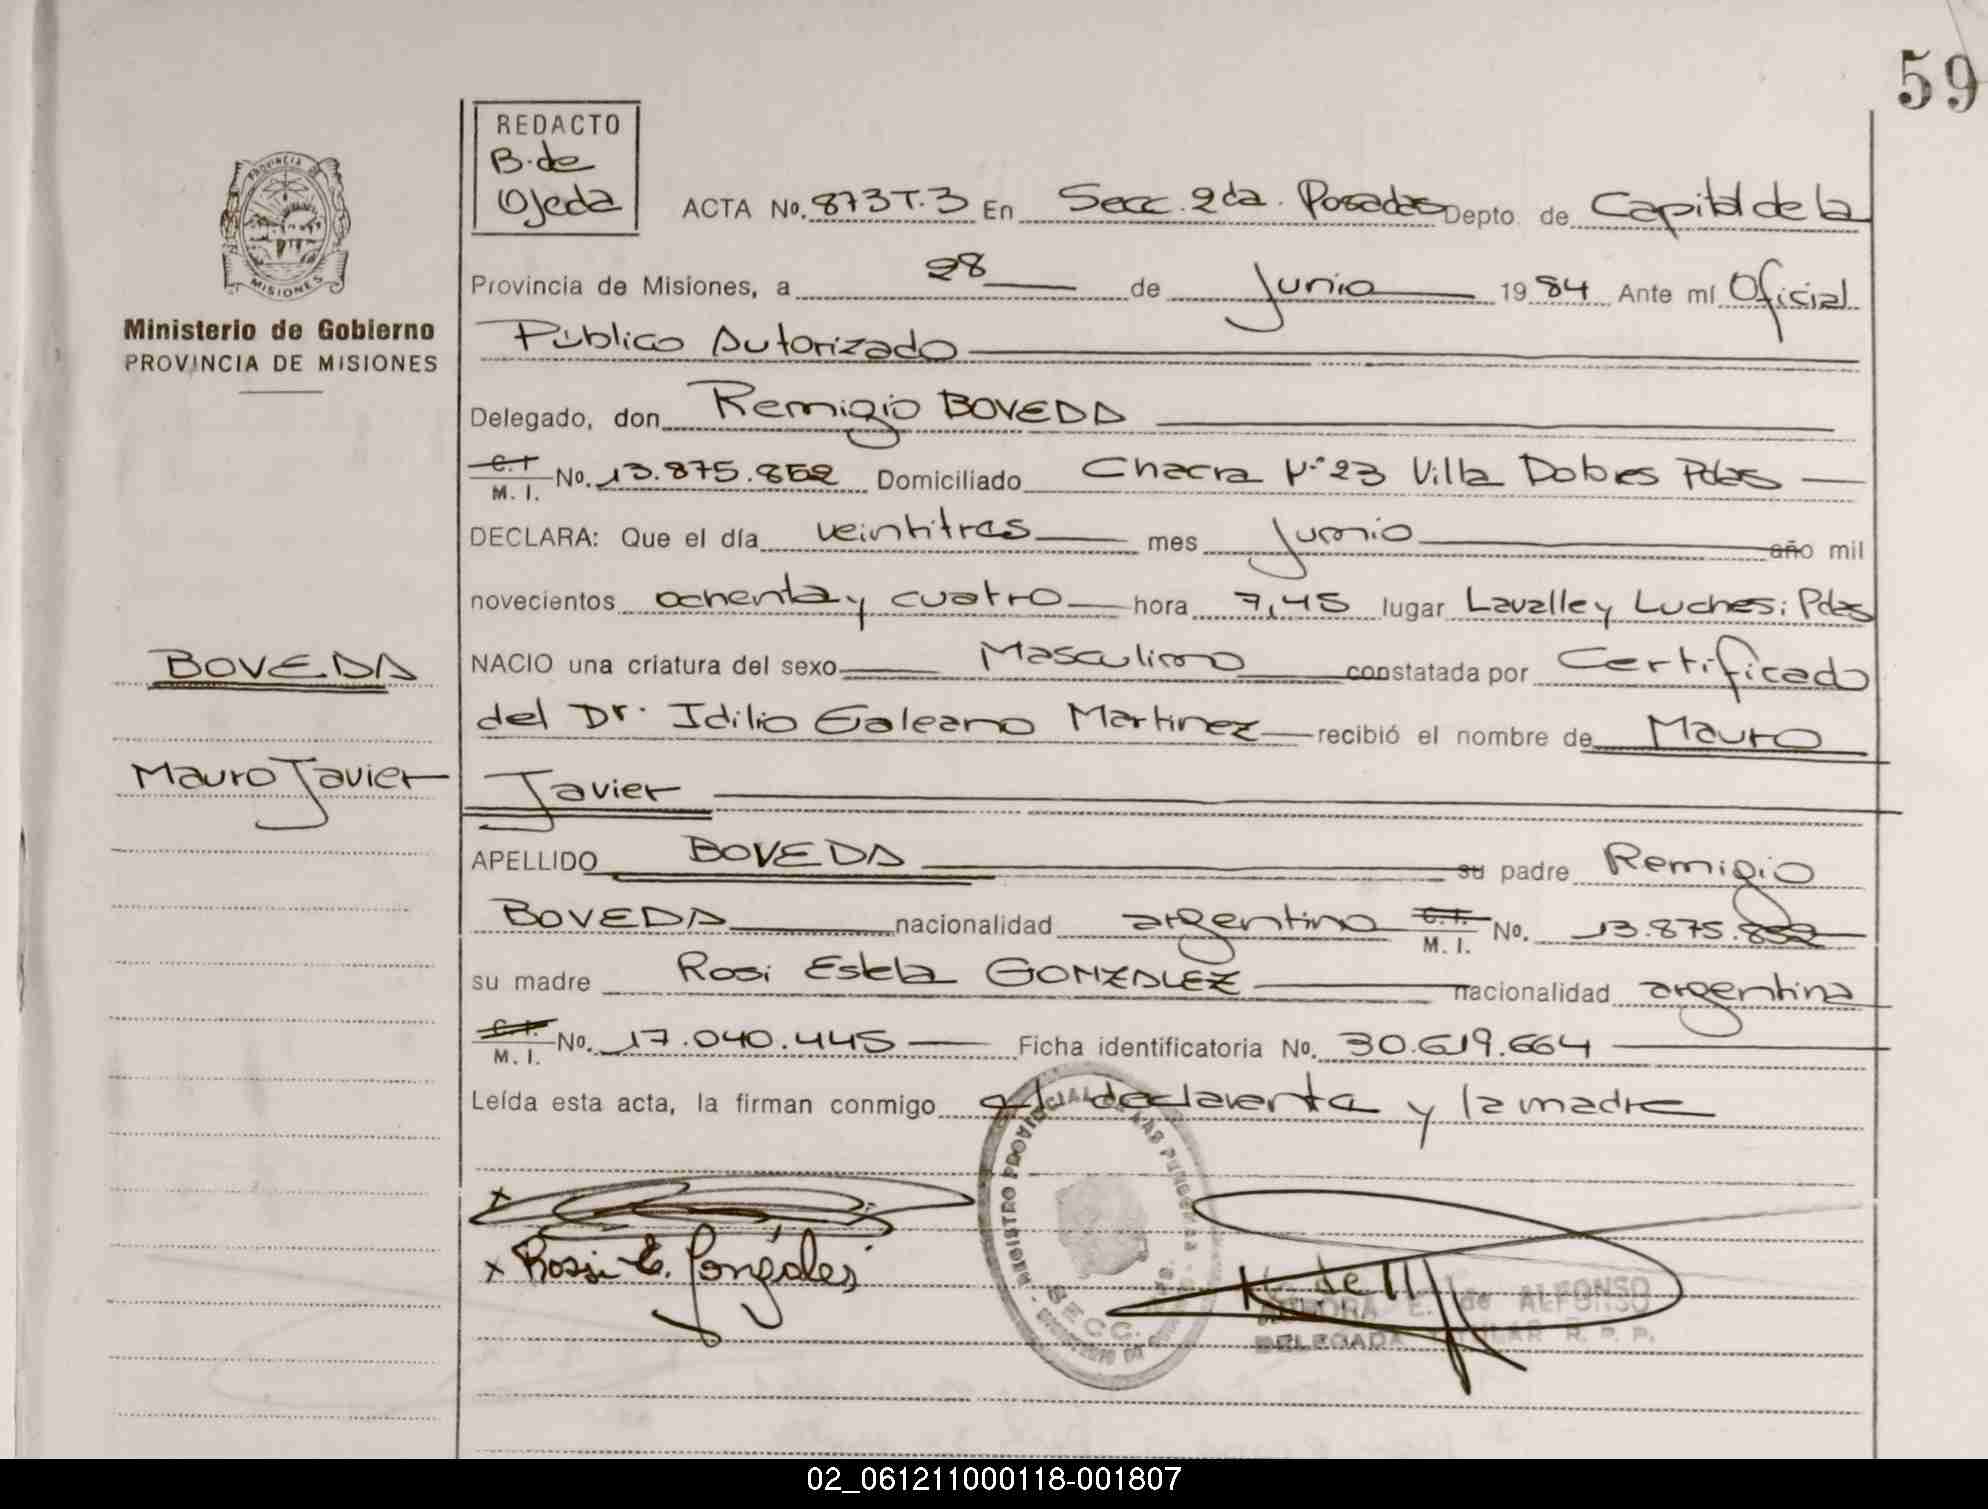 59
REDACTO
B. de
Ojeda
PROVINCIA DE
MISIONES
Ministerio de Gobierno
PROVINCIA DE MISIONES
ACTA No. 873 T. 3 En Secc. 2da. Posadas Depto. de Capital de la
Provincia de Misiones, a 28 de Junio 1984 Ante mí Oficial
Público Autorizado
Delegado, don Remigio BOVEDA
C. I. M. I. No. 13.875.852 Domiciliado Chacra Nº 23 Villa Dolores Pdas
DECLARA: Que el día veintitres mes Junio año mil
novecientos ochenta y cuatro hora 7,45 lugar Lavalle y Luchesi Pdas
BOVEDA
NACIO una criatura del sexo Masculino constatada por Certificado
del Dr. Idilio Galeano Martinez recibió el nombre de Mauro
Mauro Javier
Javier
APELLIDO BOVEDA su padre Remigio
BOVEDA nacionalidad argentino C. I. M. I. No. 13.875.852
su madre Rosi Estela GONZALEZ nacionalidad argentina
C. I. M. I. No. 17.040.445 Ficha identificatoria No. 30.619.664
Leída esta acta, la firman conmigo el declarante y la madre
REGISTRO PROVINCIAL DE LAS PERSONAS
SECC.
x
x Rossi E. Gonzáles
AURORA E. de ALFONSO
DELEGADA TITULAR R. P. P.
02_061211000118-001807